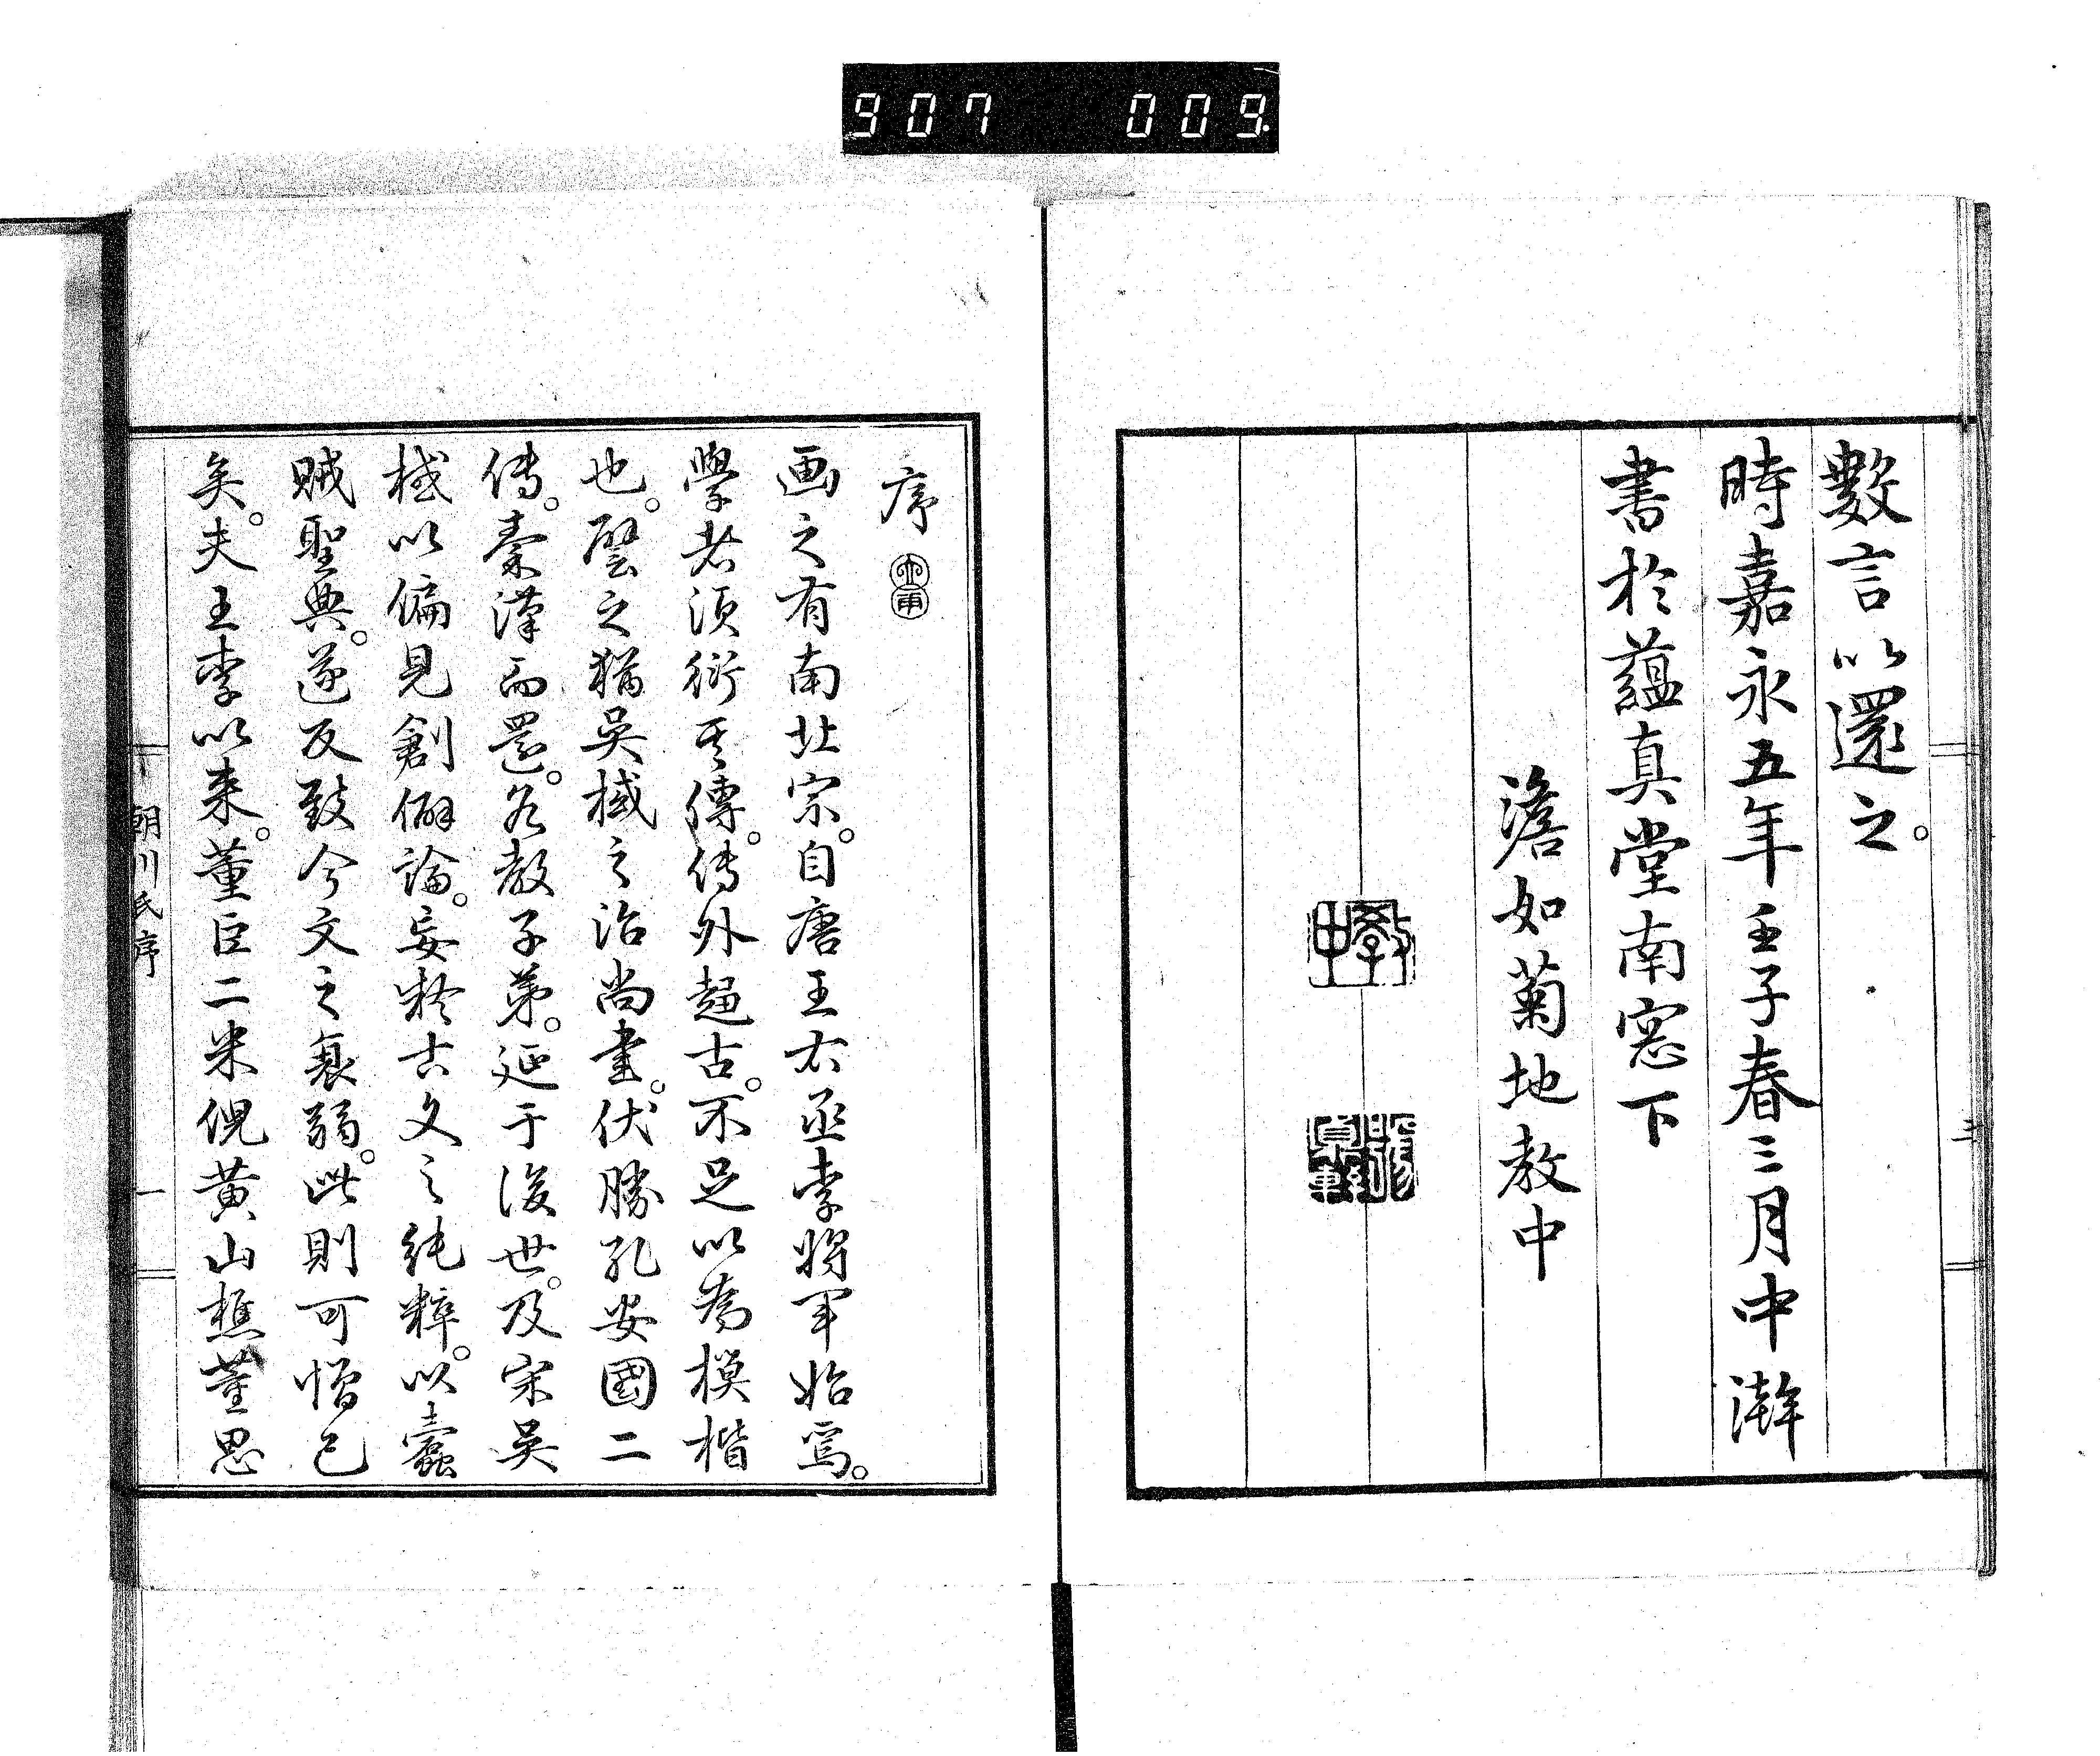 907 009
數言以還之。
時嘉永五年壬子春三月中澣
書於蘊真堂南窓下
澹如菊地教中
教中
序
画之有南北宗。自唐王右丞李將軍始焉。
學者須衍其傳。传外趨古。不足以為模楷
也。譬之猶吳棫之治尚書。伏勝孔安國二
传。秦漢而還。各教子弟。延于後世。及宋吳
棫以偏見創僻論。妄於古文之純粹。以蠹
賊聖典。遂反致今文之衰弱。此則可惜已
矣。夫王李以来。董巨二米倪黄山樵董思
朝川氏序 一
三